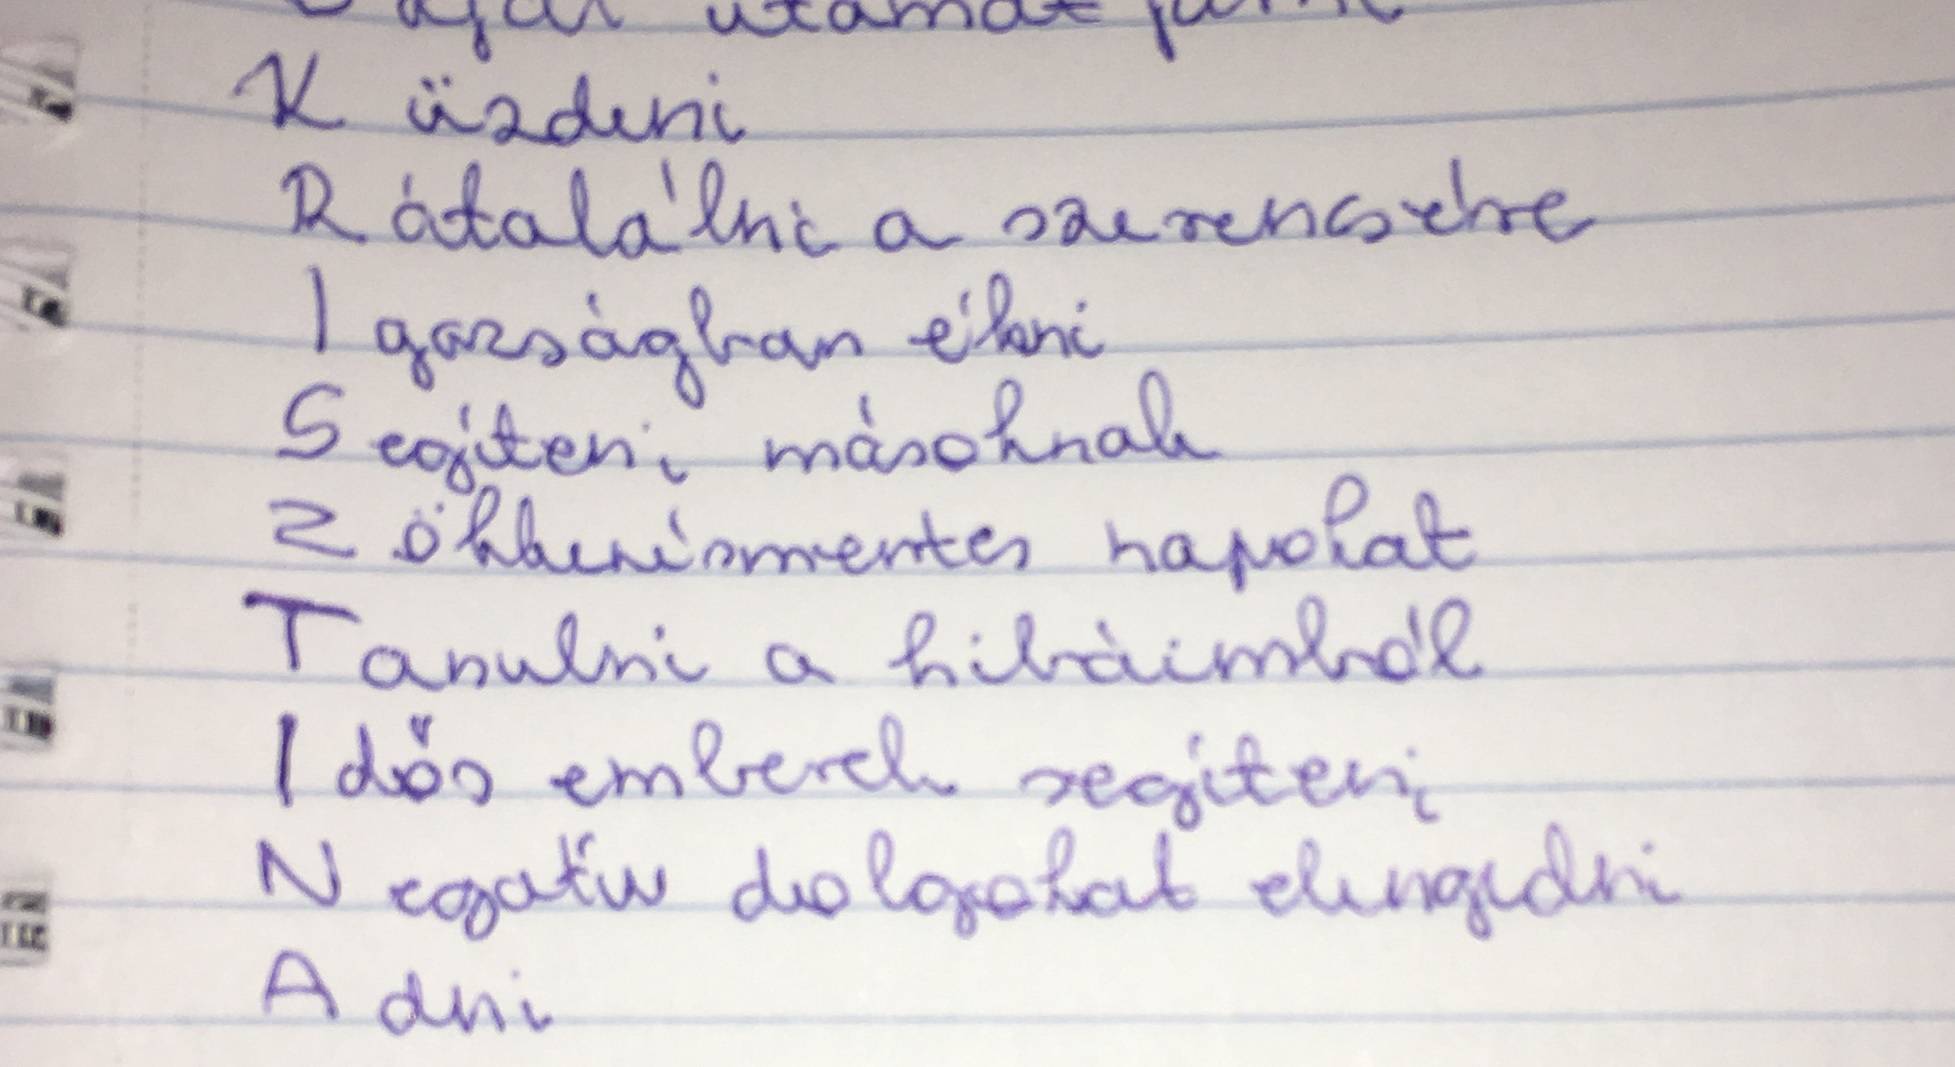 utamat
Küzdeni
Rátalálni a szerencsére
Igazságban élni
Segíteni másoknak
Zökkenésmentes napokat
Tanulni a hibáimból
Idős emberek segíteni
Negatív dolgokat elengedni
Adni